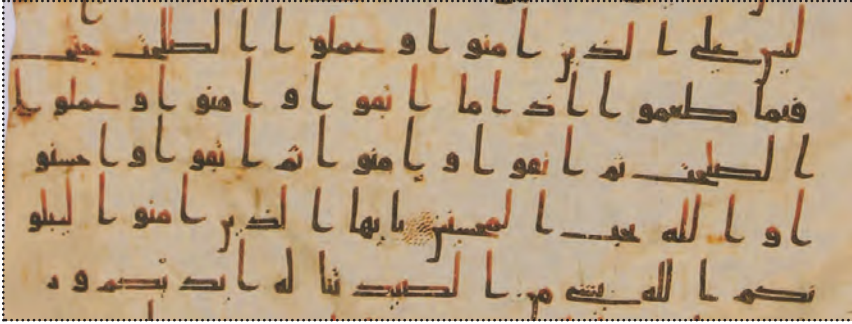 ليس على الذين امنوا وعملوا الصلحت جنح
فيما طعموا اذا ما اتقوا وامنوا وعملوا
الصلحت ثم اتقوا وامنوا ثم اتقوا واحسنوا
والله يحب المحسنين يايها الذين امنوا ليبلو
نكم الله بشى من الصيد تناله ايديكم ور